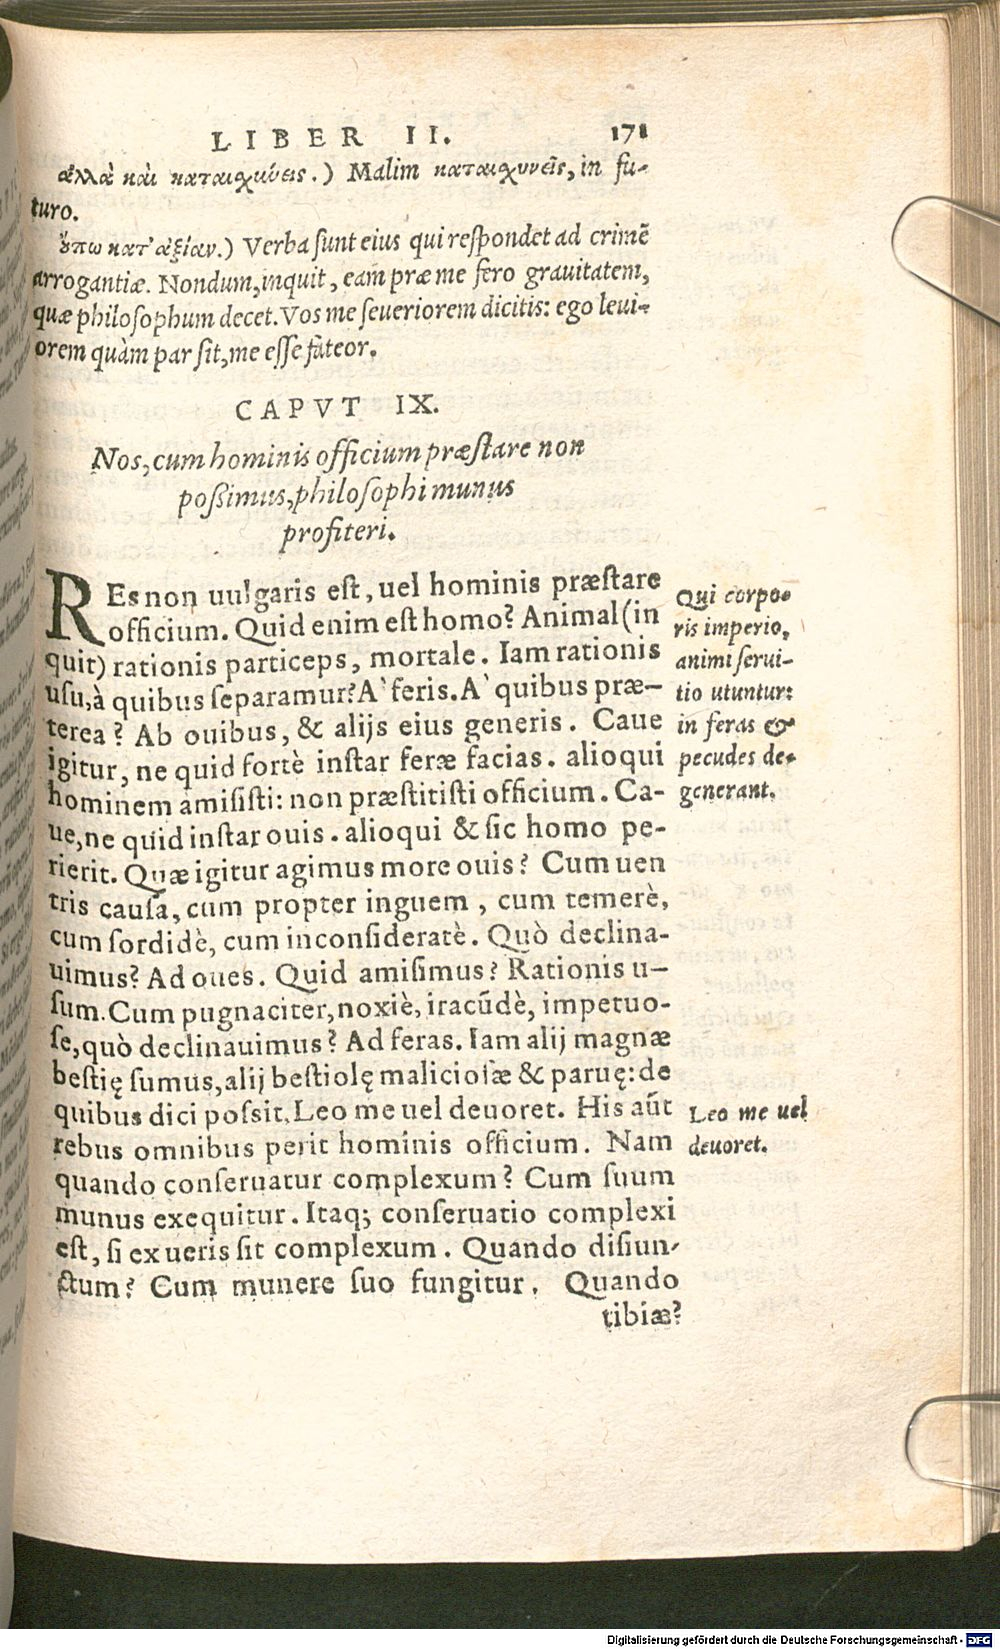 LIBER II. 171
ἀλλὰ καὶ καταισχύνεις.) Malim καταισχυνεῖς, in fu-
turo.
οὔπω κατ' ἀξίαν.) Verba sunt eius qui respondet ad crimē
arrogantiæ. Nondum, inquit, eam præ me fero grauitatem,
quæ philosophum decet. Vos me seueriorem dicitis: ego leui-
orem quàm par sit, me esse fateor.
CAPVT IX.
Nos, cum hominis officium præstare non
possimus, philosophi munus
profiteri.
REs non uulgaris est, uel hominis præstare
officium. Quid enim est homo? Animal (in
quit) rationis particeps, mortale. Iam rationis
usu, à quibus separamur? A' feris. A' quibus præ-
terea? Ab ouibus, & alijs eius generis. Caue
igitur, ne quid fortè instar feræ facias. alioqui
hominem amisisti: non præstitisti officium. Ca-
ue, ne quid instar ouis. alioqui & sic homo pe-
rierit. Quæ igitur agimus more ouis? Cum uen
tris causa, cum propter inguem, cum temerè,
cum sordidè, cum inconsideratè. Quò declina-
uimus? Ad oues. Quid amisimus? Rationis u-
sum. Cum pugnaciter, noxiè, iracūdè, impetuo-
se, quò declinauimus? Ad feras. Iam alij magnæ
bestię sumus, alij bestiolę maliciosæ & paruę: de
quibus dici possit, Leo me uel deuoret. His aūt
rebus omnibus perit hominis officium. Nam
quando conseruatur complexum? Cum suum
munus exequitur. Itaq; conseruatio complexi
est, si ex ueris sit complexum. Quando disiun-
ctum? Cum munere suo fungitur. Quando
tibiæ?
Qui corpo-
ris imperio,
animi serui-
tio utuntur:
in feras &
pecudes de-
generant.
Leo me uel
deuoret.
Digitalisierung gefördert durch die Deutsche Forschungsgemeinschaft - DFG